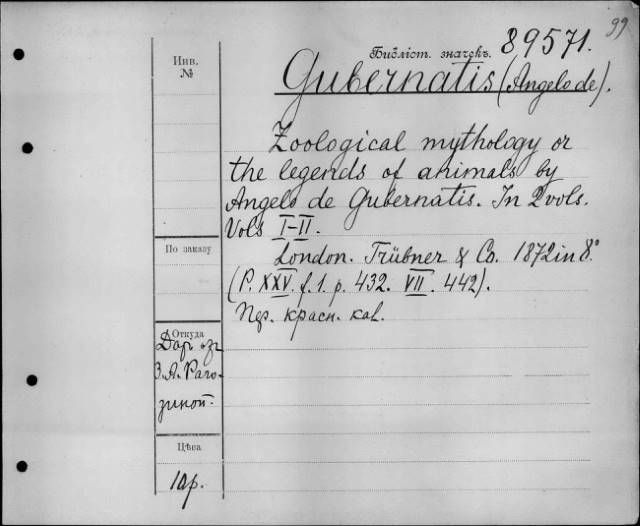 99
Библіот. значекъ. 89571.
Gubernatis (Angelo de).
Инв.
№
Zoological mythology or
the legends of animals by
Angelo de Gubernatis. In 2 vols.
Vols I-II.
По заказу
London. Trübner & Co. 1872 in 8°
(P. XXV. f. 1. p. 432. VII. 442).
Пер. красн. кал.
Откуда
Даръ
З.А. Раго-
зиной.
Цѣна
1 др.